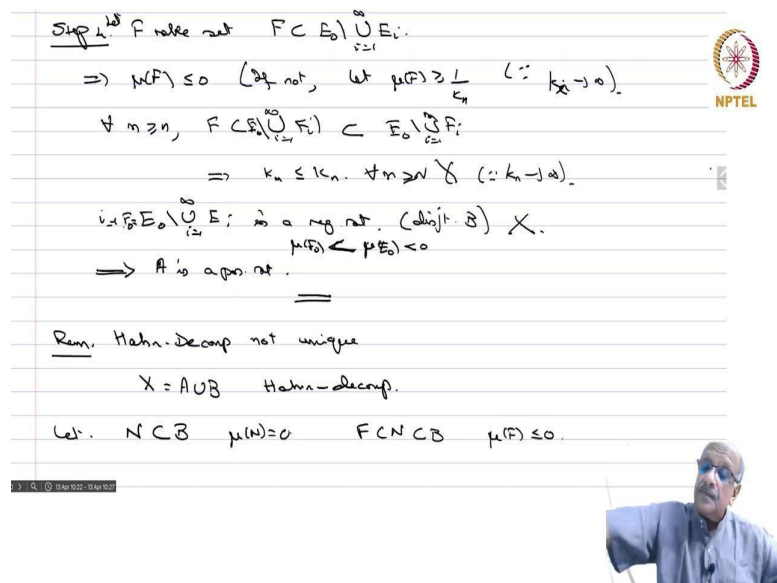 Step 4. Let F mble set F ⊂ E₀ \ ⋃_{i=1}^∞ E_i.
⇒ μ(F) ≤ 0 (If not, let μ(F) ≥ 1/k_n (∵ k_n → ∞).
∀ m ≥ n, F ⊂ (E₀ \ ⋃_{i=1}^∞ F_i) ⊂ E₀ \ ⋃_{i=1}^m F_i
⇒ k_m ≤ k_n. ∀ m ≥ N X (∵ k_n → ∞).
i.e. F₀ = E₀ \ ⋃_{i=1}^∞ E_i is a neg set. (disjt. B) X.
μ(F₀) < μ(E₀) < 0
⟹ A is a pos. set.
Rem. Hahn-Decomp not unique
X = A ∪ B Hahn-decomp.
Let. N ⊂ B μ(N) = 0 F ⊂ N ⊂ B μ(F) ≤ 0.
NPTEL
13 Apr 10:22 - 13 Apr 10:27